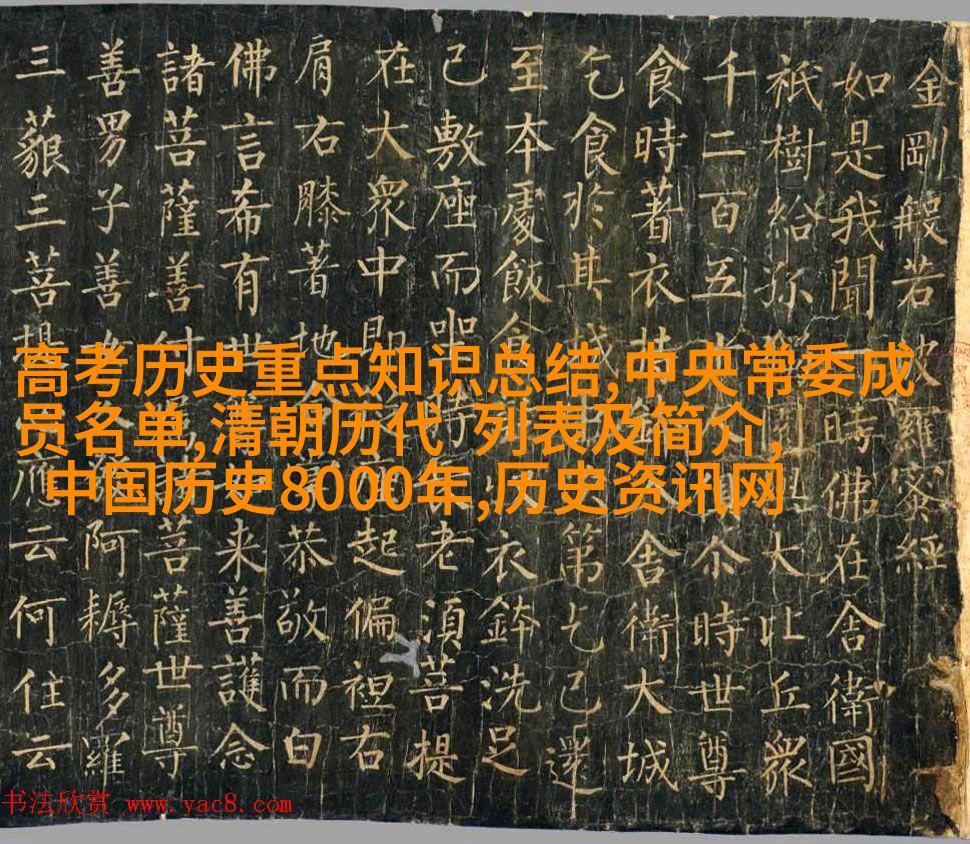 金剛般若波羅蜜經
如是我聞時佛在舍衛國
祇樹給孤大比丘眾
千二百五尒時世尊
食時著衣舍衛大城
乞食於其城第乞已還
至本處飯食衣鉢洗足
已敷座而坐老須菩提
在大眾中即起偏袒右
肩右膝著地恭敬而白
佛言希有世来善護念
諸菩薩善付菩薩世尊
善男子善女阿耨多羅
三藐三菩提應云何住云
高考历史重点知识总结,中央常委成
员名单,清朝历代 列表及简介,
中国历史8000年,历史资讯网
书法欣赏 www.yac8.com